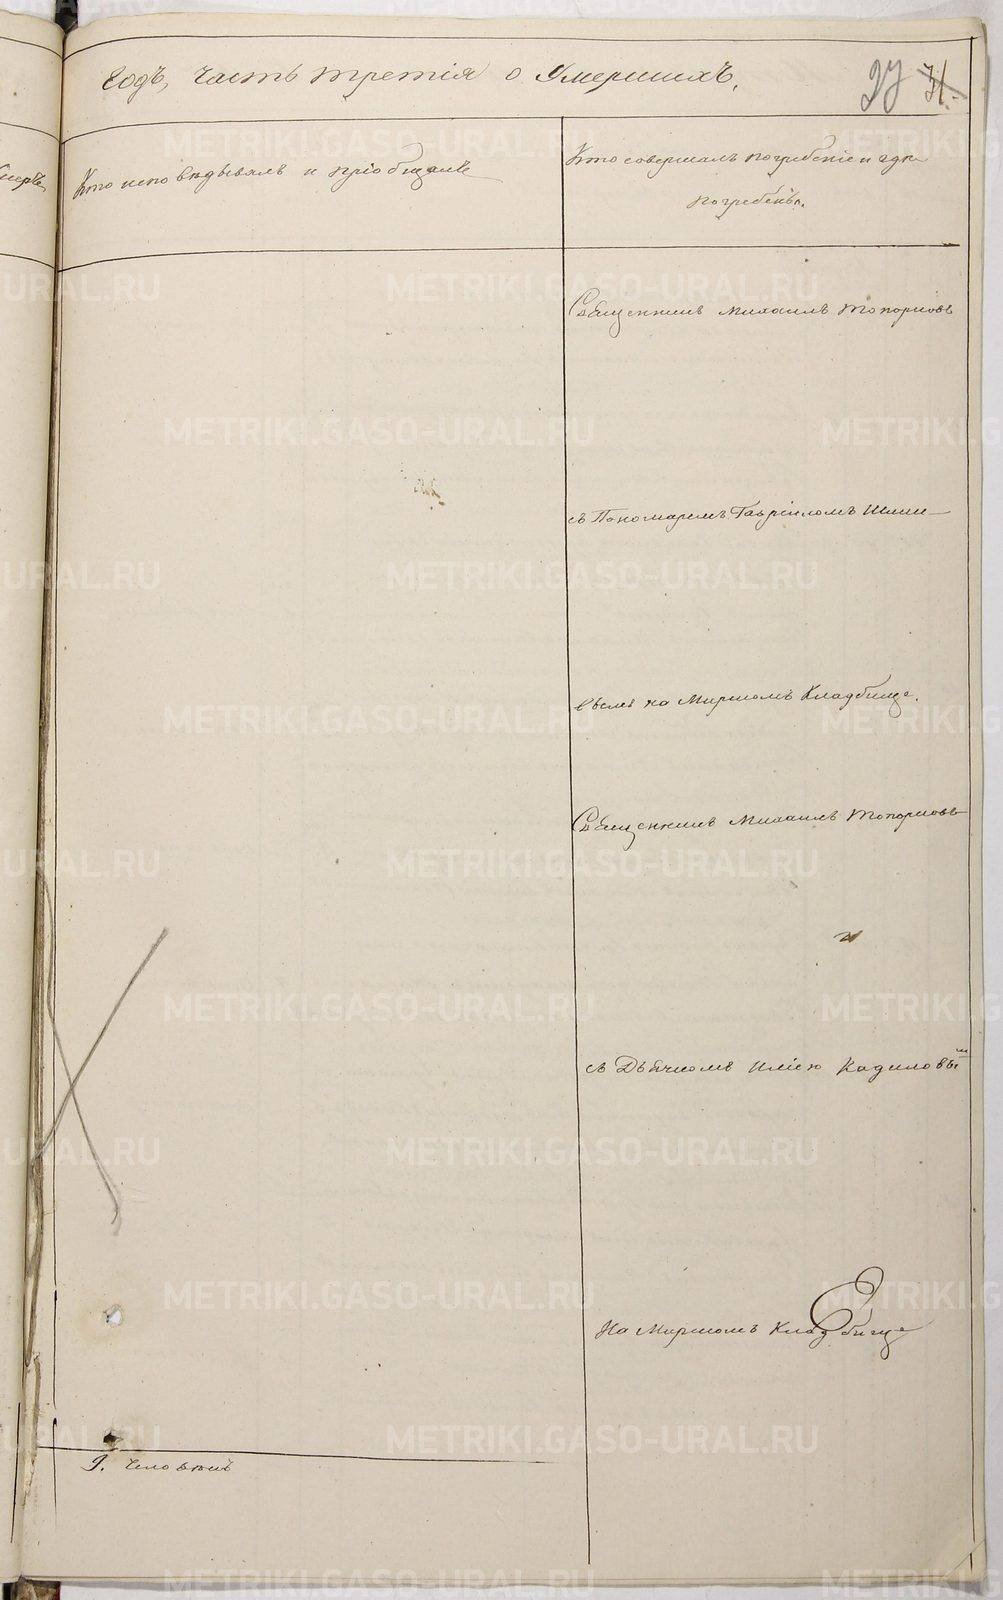 Годъ, часть третія о Умершихъ,
37 31.
Кто исповѣдывалъ и пріобщалъ
Кто совершалъ погребеніе и гдѣ
погребенъ.
Священникъ Михаилъ Топорковъ
съ Пономаремъ Гавріиломъ
на Мирскомъ Кладбище.
Священникъ Михаилъ Топорковъ
и
съ Дьячкомъ Иліею Кадиловымъ
На Мирскомъ Кладбище
9. человѣкъ
METRIKI.GASO-URAL.RU